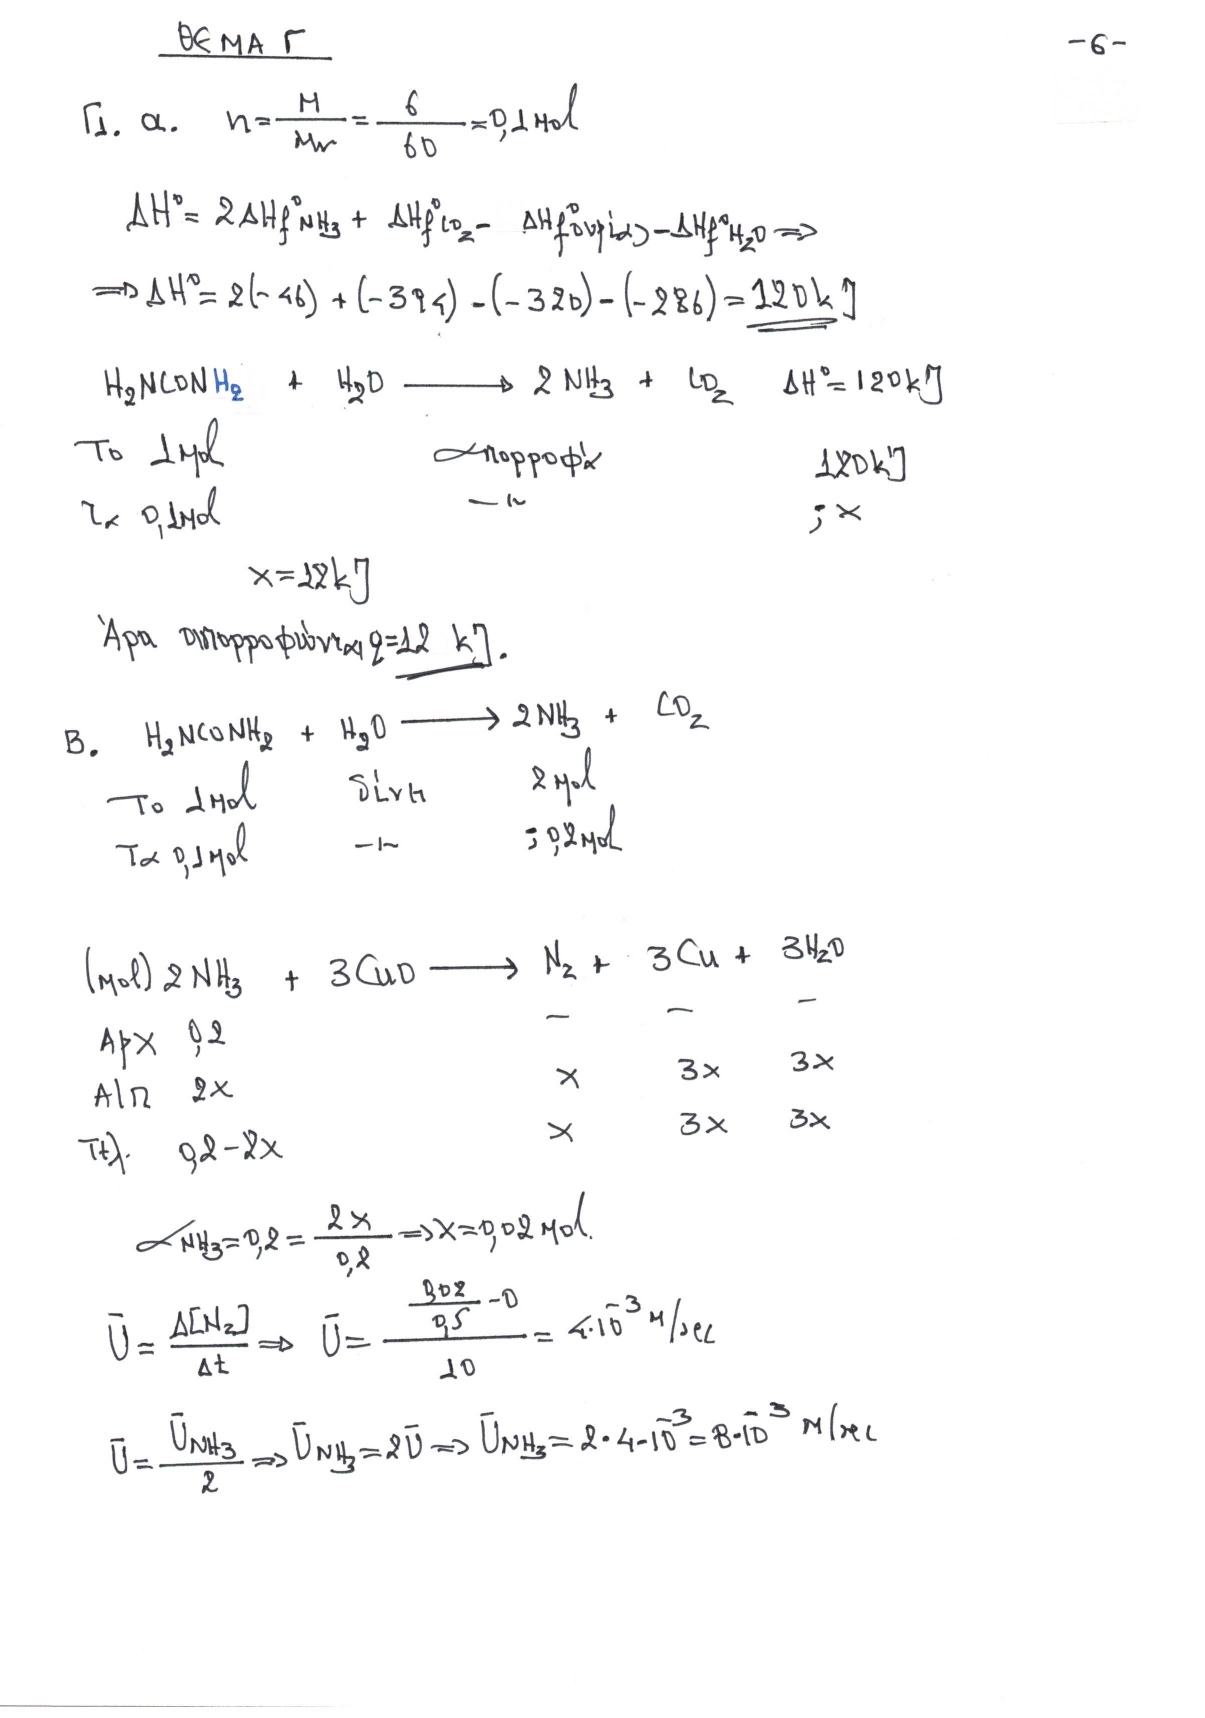 ΘΕΜΑ Γ
-6-
Γ1. α. n = M/Mr = 6/60 = 0,1 mol
ΔH° = 2ΔHf°NH₃ + ΔHf°CO₂ - ΔHf°ουρίας - ΔHf°H₂O ⇒
⇒ ΔH° = 2(-46) + (-394) - (-320) - (-286) = 120kJ
H₂NCONH₂ + H₂O → 2NH₃ + CO₂ ΔH° = 120kJ
Το 1mol απορροφά 120kJ
Τα 0,1mol -//- ; x
x = 12kJ
Άρα απορροφώνται q = 12 kJ.
Β. H₂NCONH₂ + H₂O → 2NH₃ + CO₂
Το 1mol δίνει 2mol
Τα 0,1mol -//- ; 0,2mol
(mol) 2NH₃ + 3CuO → N₂ + 3Cu + 3H₂O
Αρχ 0,2 - - -
Α|Π 2x x 3x 3x
Τελ. 0,2-2x x 3x 3x
αNH₃ = 0,2 = 2x/0,2 ⇒ x = 0,02 mol.
Ū = Δ[N₂]/Δt ⇒ Ū = (0,02/0,5 - 0)/10 = 4·10⁻³ M/sec
Ū = ŪNH₃/2 ⇒ ŪNH₃ = 2Ū ⇒ ŪNH₃ = 2·4·10⁻³ = 8·10⁻³ M/sec